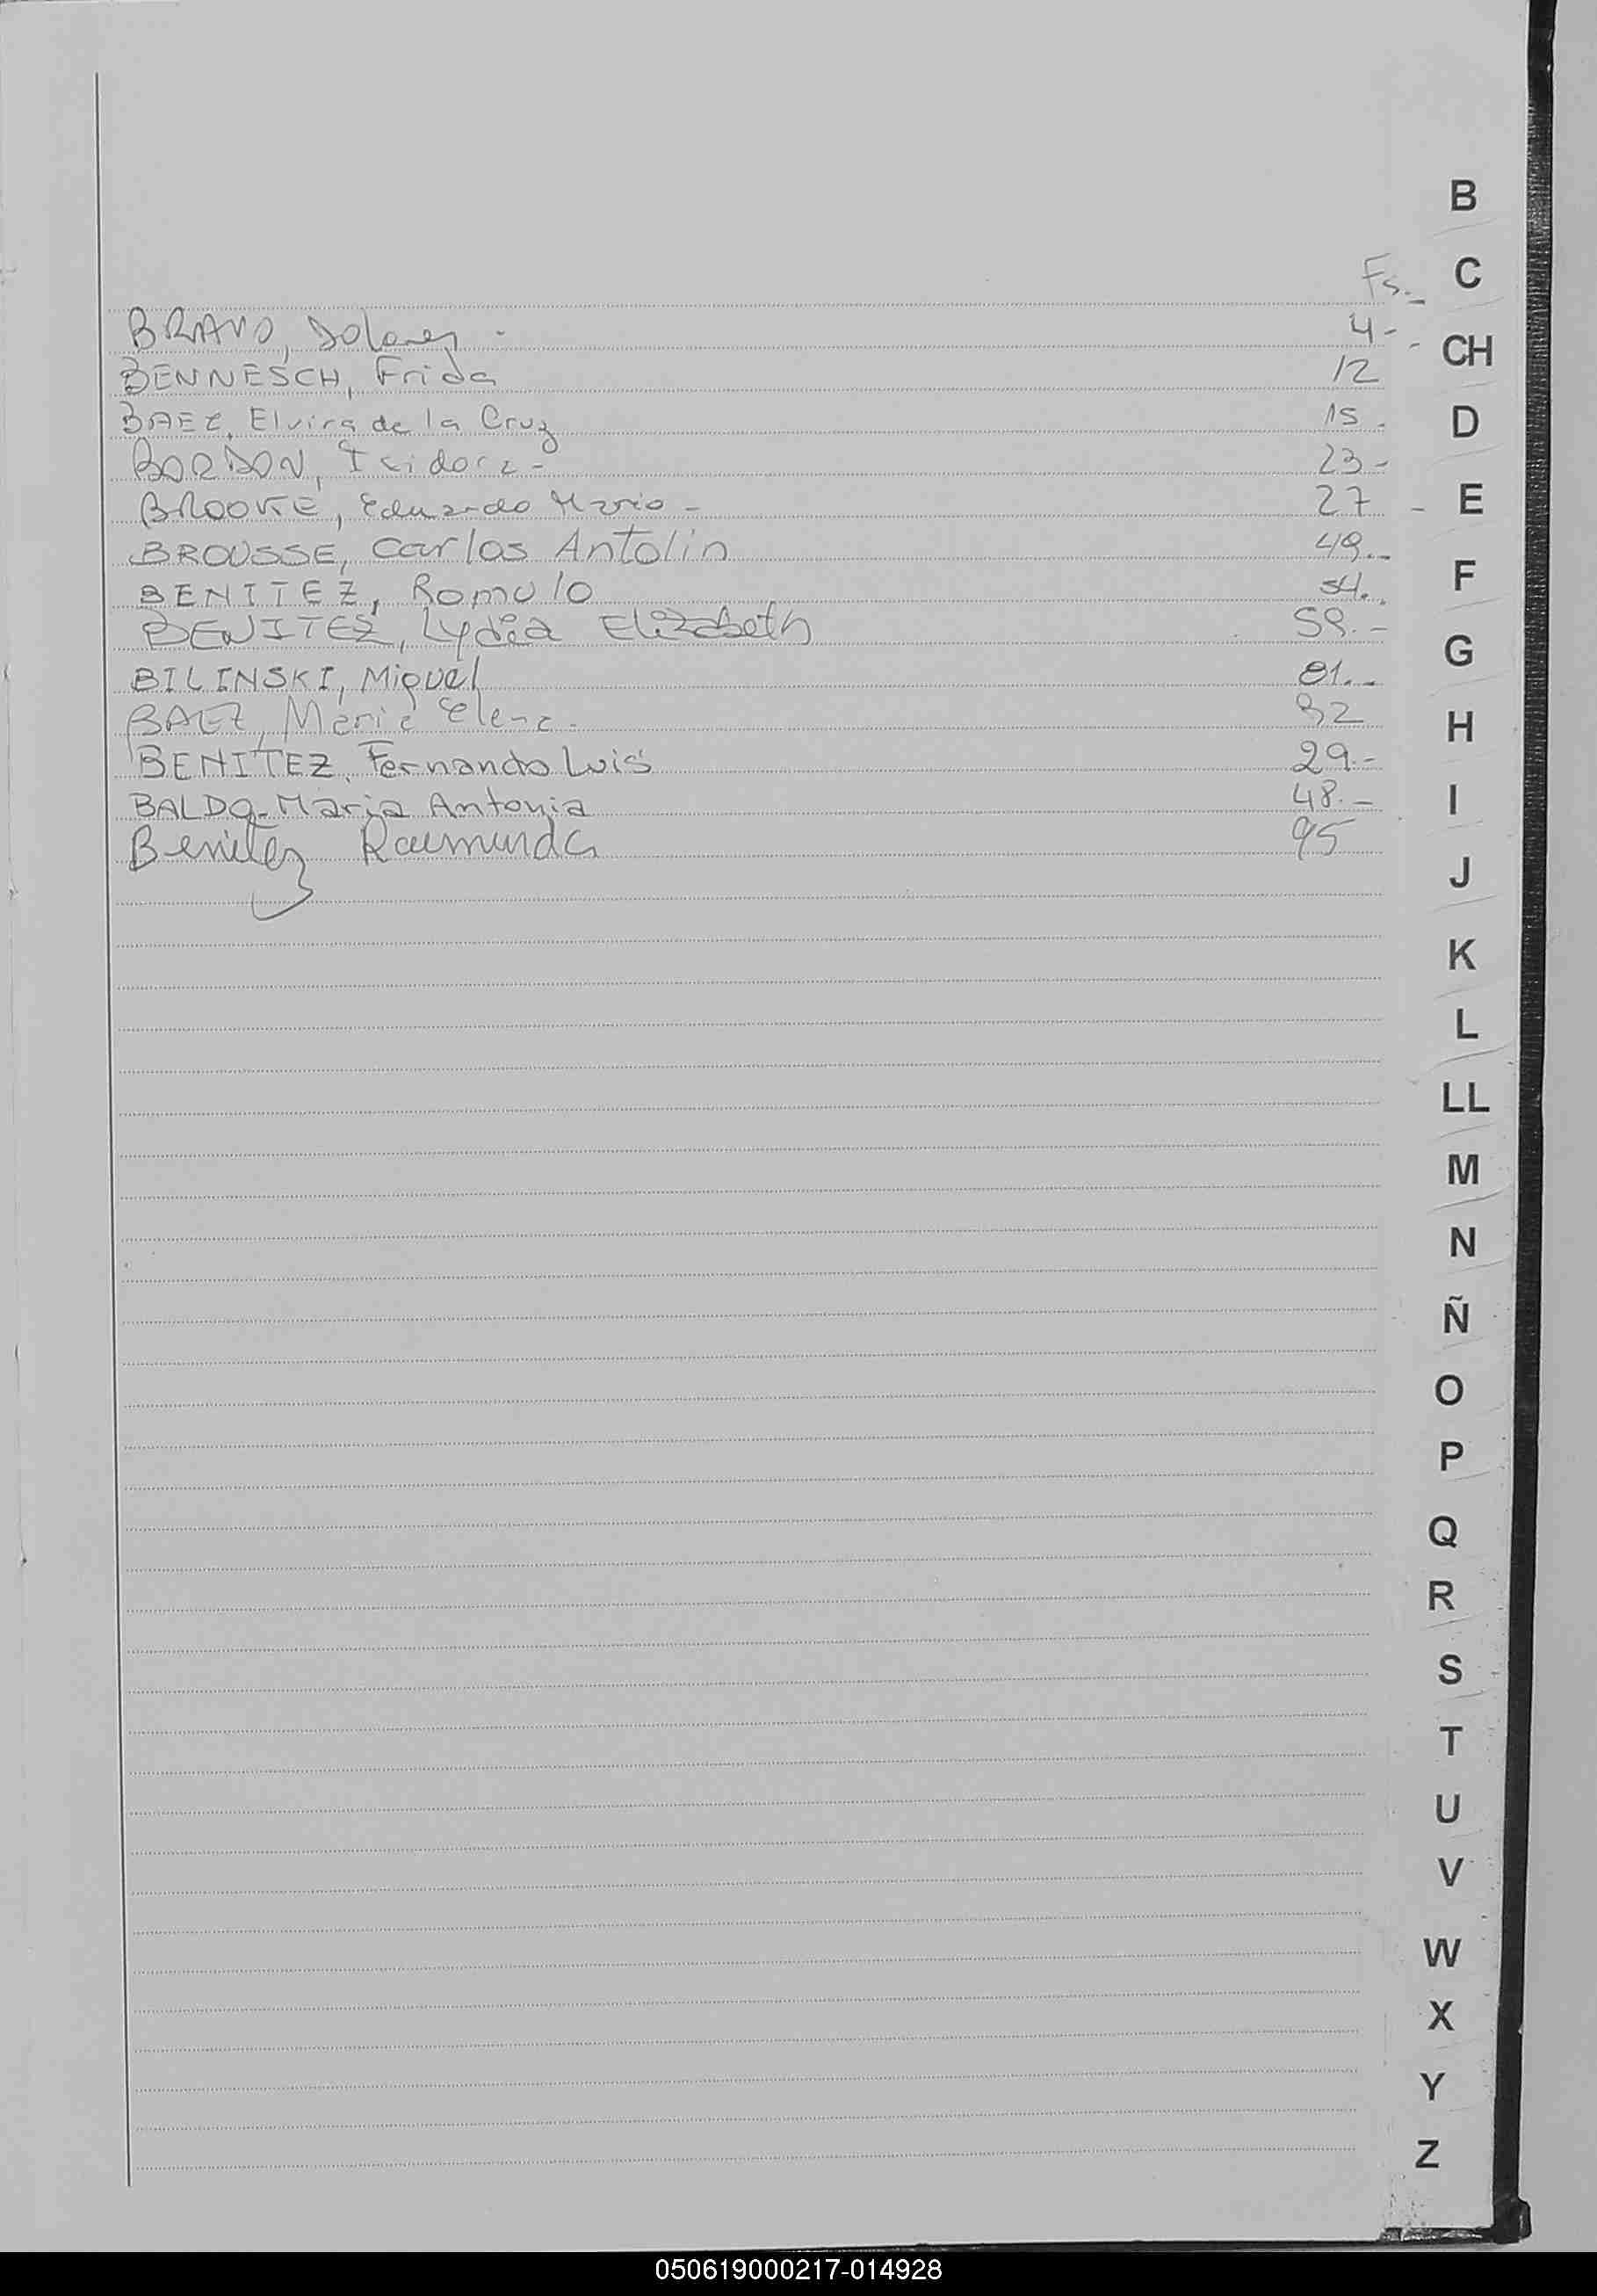 B
C
Fs.-
BRAVO, Dolores - 4-
CH
BENNESCH, Frida 12
BAEZ, Elvira de la Cruz 15.
D
BORDON, Isidora - 23-
BROOKE, Eduardo Mario - 27 -
E
BROUSSE, Carlos Antolin 49.-
BENITEZ, Romulo 54.
F
BENITEZ, Lydia Elizabeth 59.-
G
BILINSKI, Miguel 81.-
BAEZ, Maria Elena - 32
H
BENITEZ, Fernando Luis 29.-
BALDO-Maria Antonia 48.-
I
Benitez Raimunda 95
J
K
L
LL
M
N
Ñ
O
P
Q
R
S
T
U
V
W
X
Y
Z
050619000217-014928